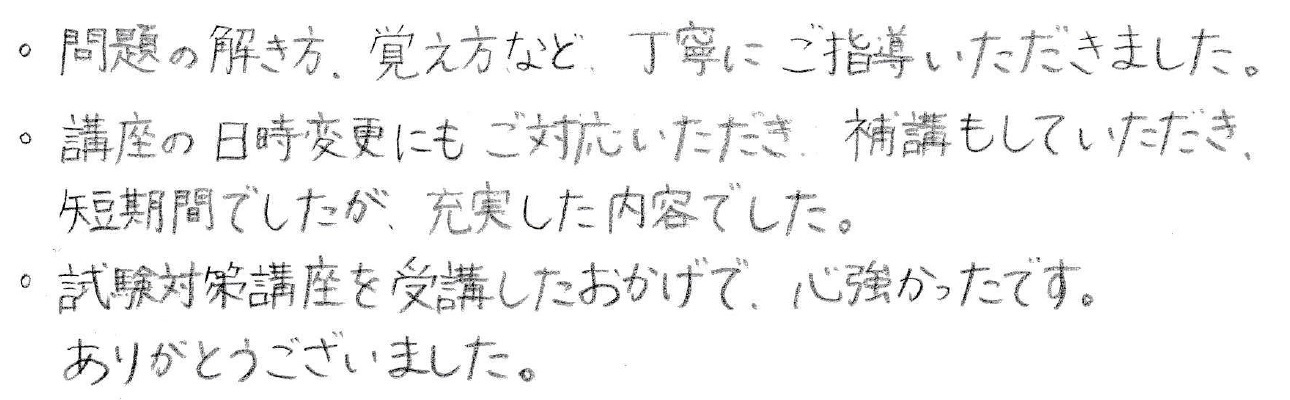 。問題の解き方、覚え方など、丁寧にご指導いただきました。
。講座の日時変更にもご対応いただき、補講もしていただき、
短期間でしたが、充実した内容でした。
。試験対策講座を受講したおかげで、心強かったです。
ありがとうございました。